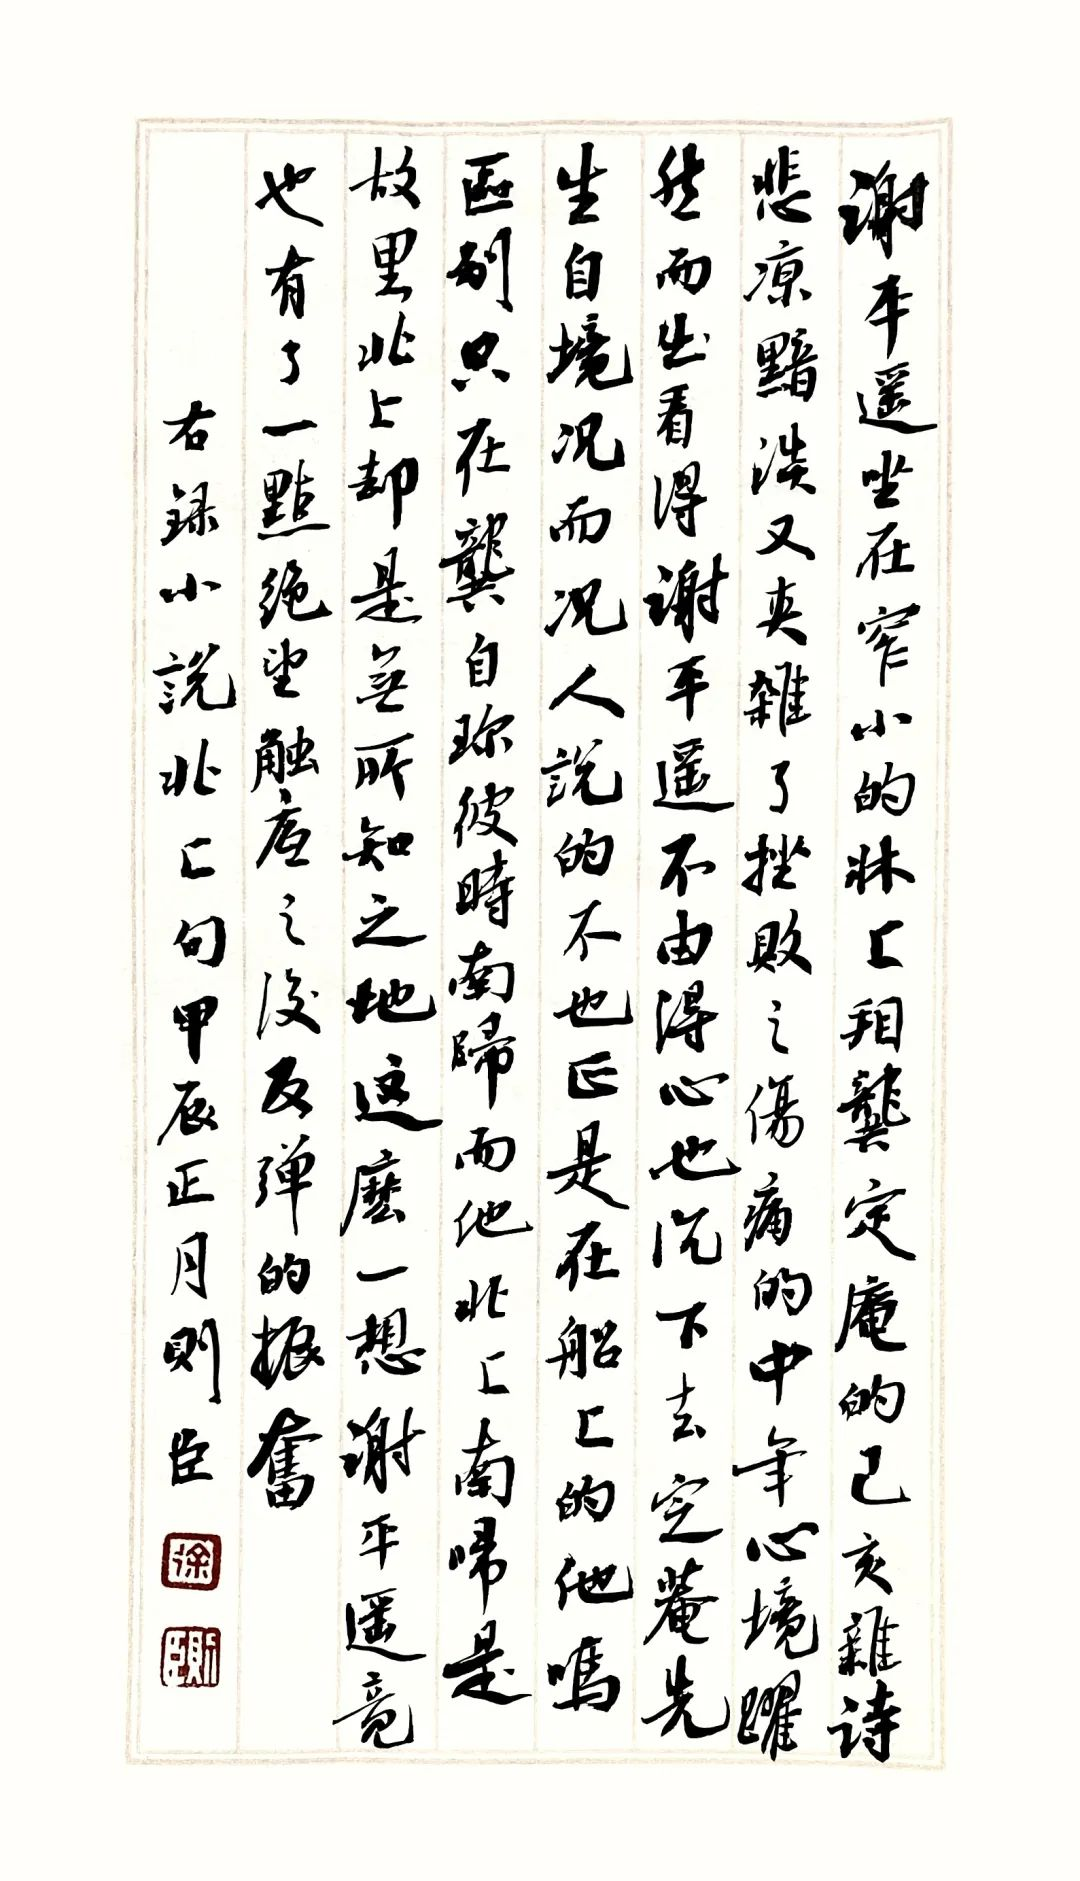 谢平遥坐在窄小的牀上翔龔定庵的己亥雜诗
悲凉黯淡又夹雜了挫敗之傷痛的中年心境躍
然而出看得谢平遥不由得心也沉下去定菴先
生自境况而况人説的不也正是在船上的他嗎
區别只在龔自珍彼時南歸而他北上南歸是
故里北上却是無所知之地这麽一想谢平遥竟
也有了一點绝望触底之後反弹的振奮
右録小説北上句甲辰正月則臣
徐
則臣